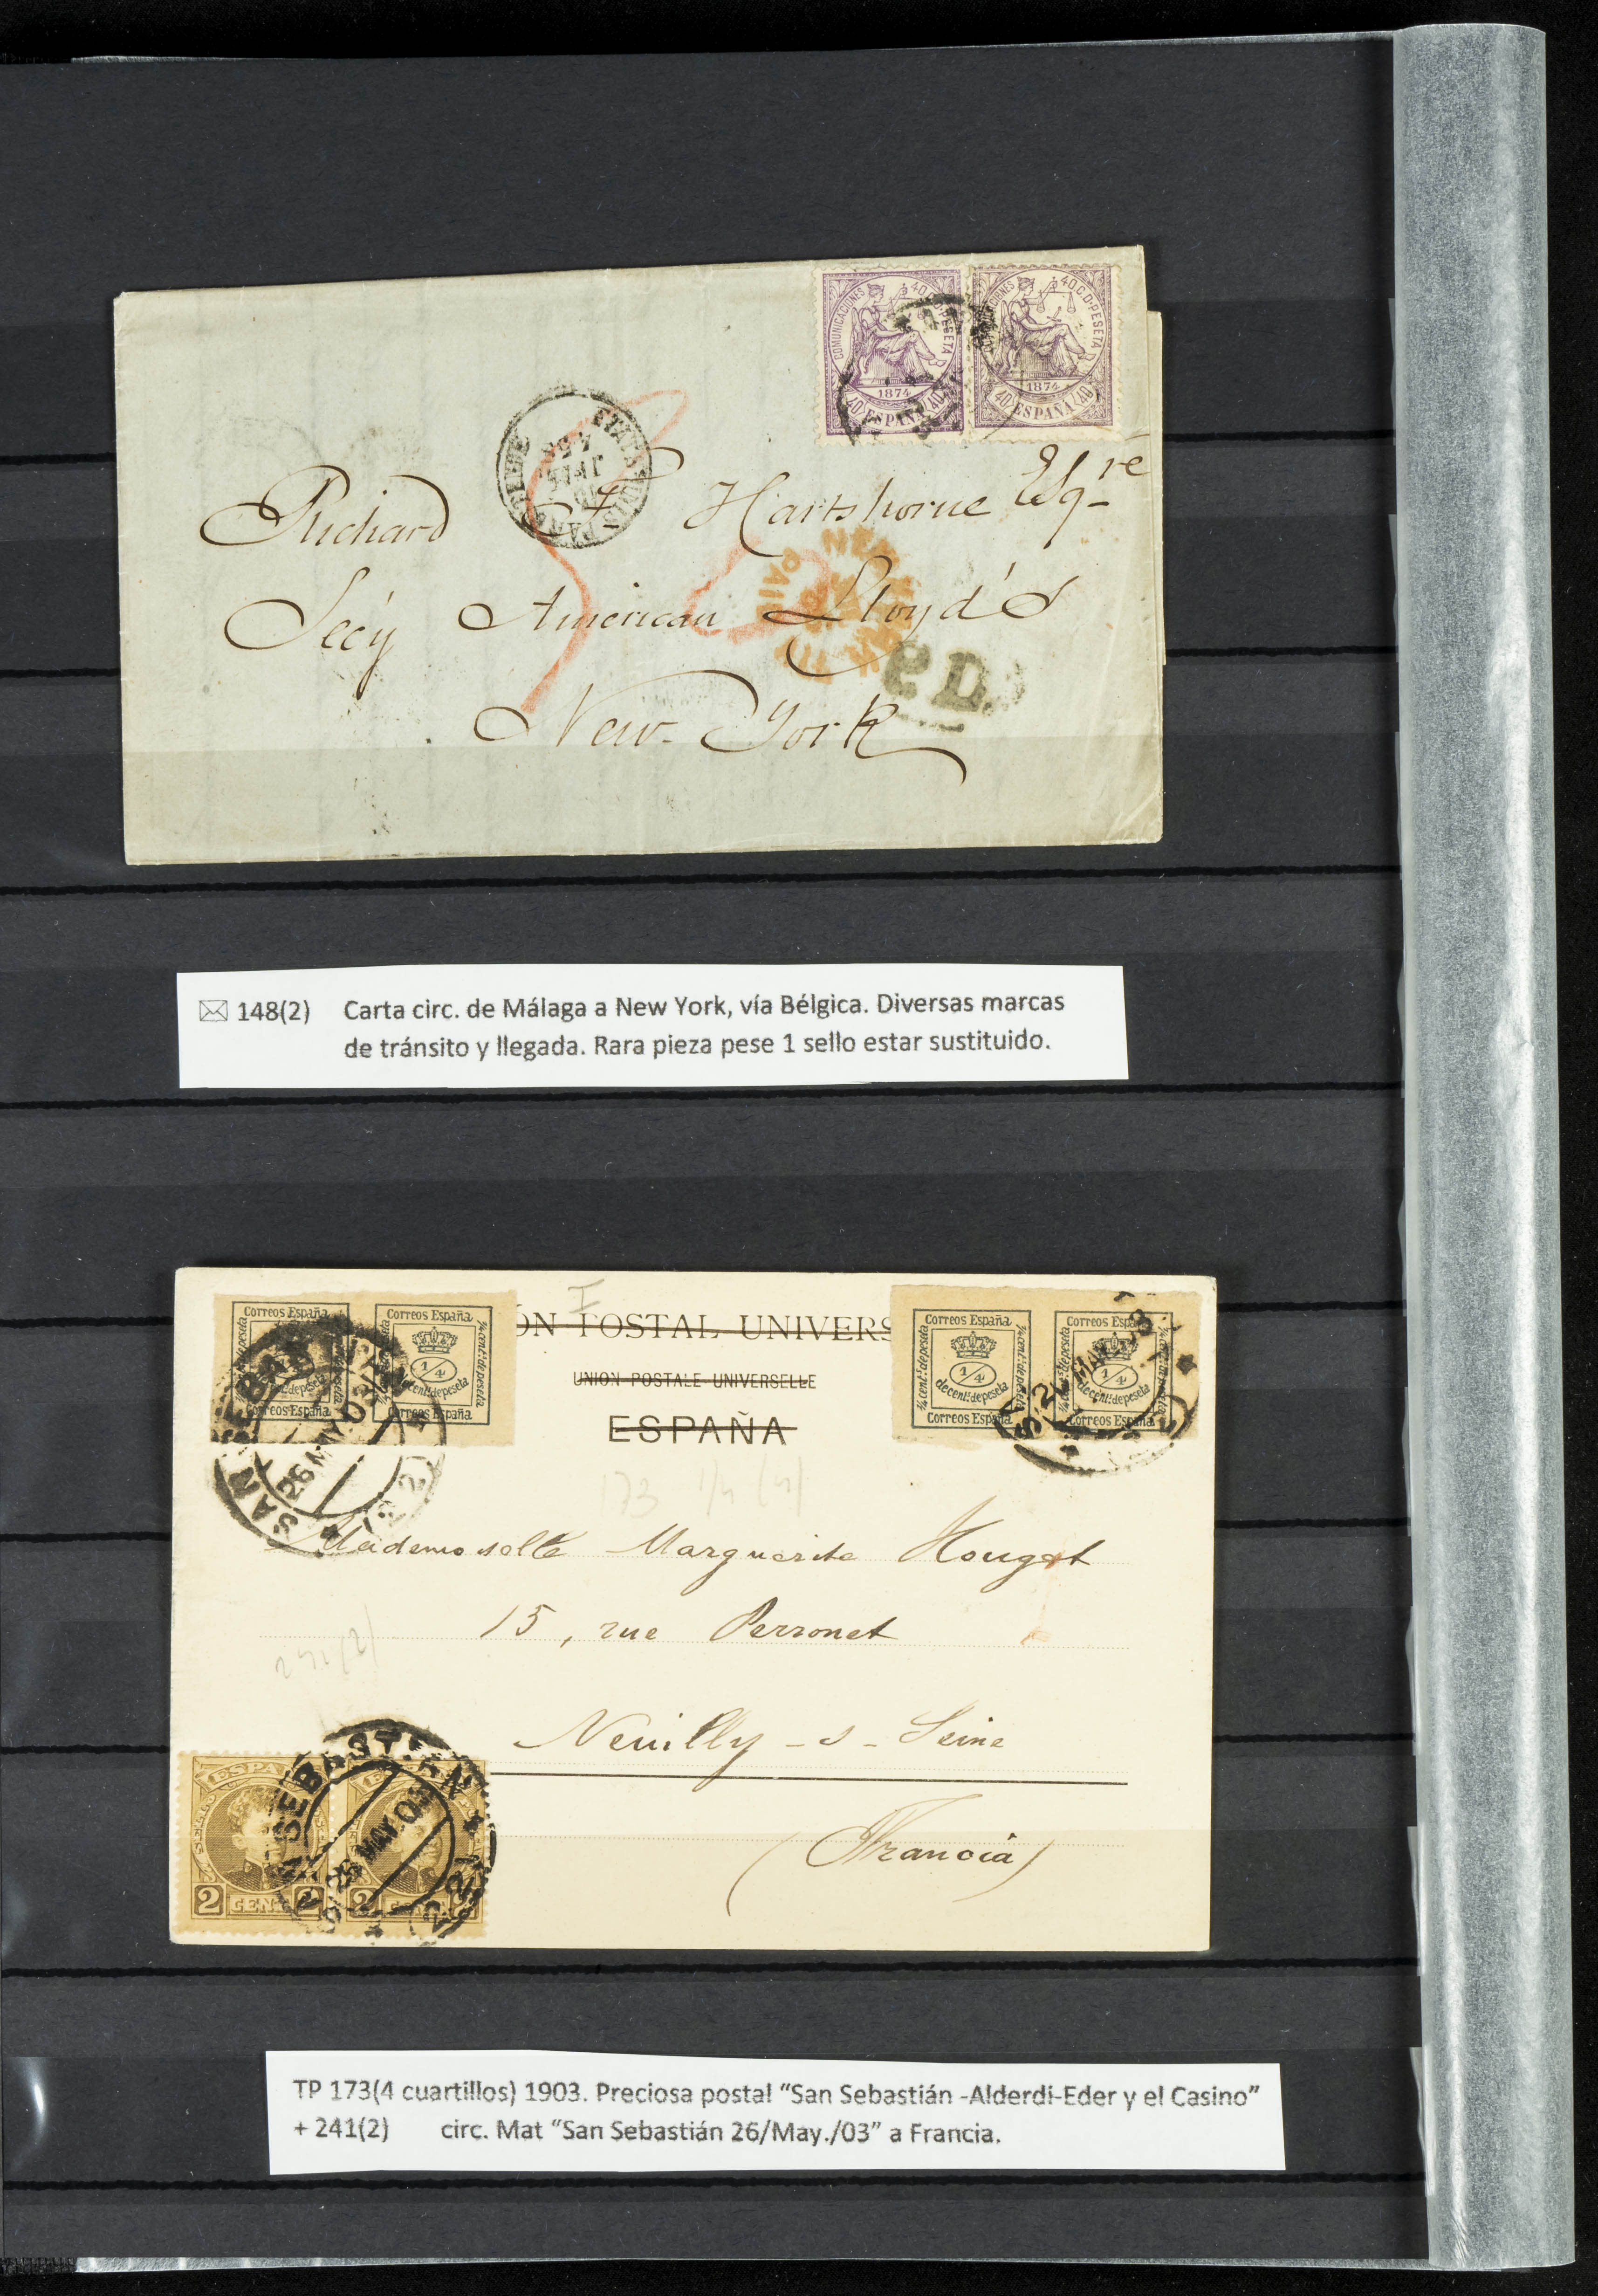 COMUNICACIONES 40 C. D. PESETA
1874
40 ESPAÑA 40
40 C. D. PESETA
1874
40 ESPAÑA 40
Richard Hartshorne Esqre
Secy American Lloyd's
New York
PAID
P.D.
148(2) Carta circ. de Málaga a New York, vía Bélgica. Diversas marcas
de tránsito y llegada. Rara pieza pese 1 sello estar sustituido.
Correos España
Correos España
1/4
de cent.º de peseta
Correos España
I
ÓN POSTAL UNIVERS
UNION POSTALE UNIVERSELLE
ESPAÑA
Correos España
1/4
de cent.º de peseta
Correos España
Correos España
1/4
Correos España
SAN SEBAS
26 MAY 03
173 1/4 (4)
Mademoiselle Marguerite Houget
15, rue Perronet
241(2)
Neuilly - s - Seine
(Francia)
SAN SEBASTIAN
26 MAY 03
2 CENT 2
TP 173(4 cuartillos) 1903. Preciosa postal “San Sebastián -Alderdi-Eder y el Casino”
+ 241(2) circ. Mat “San Sebastián 26/May./03” a Francia.